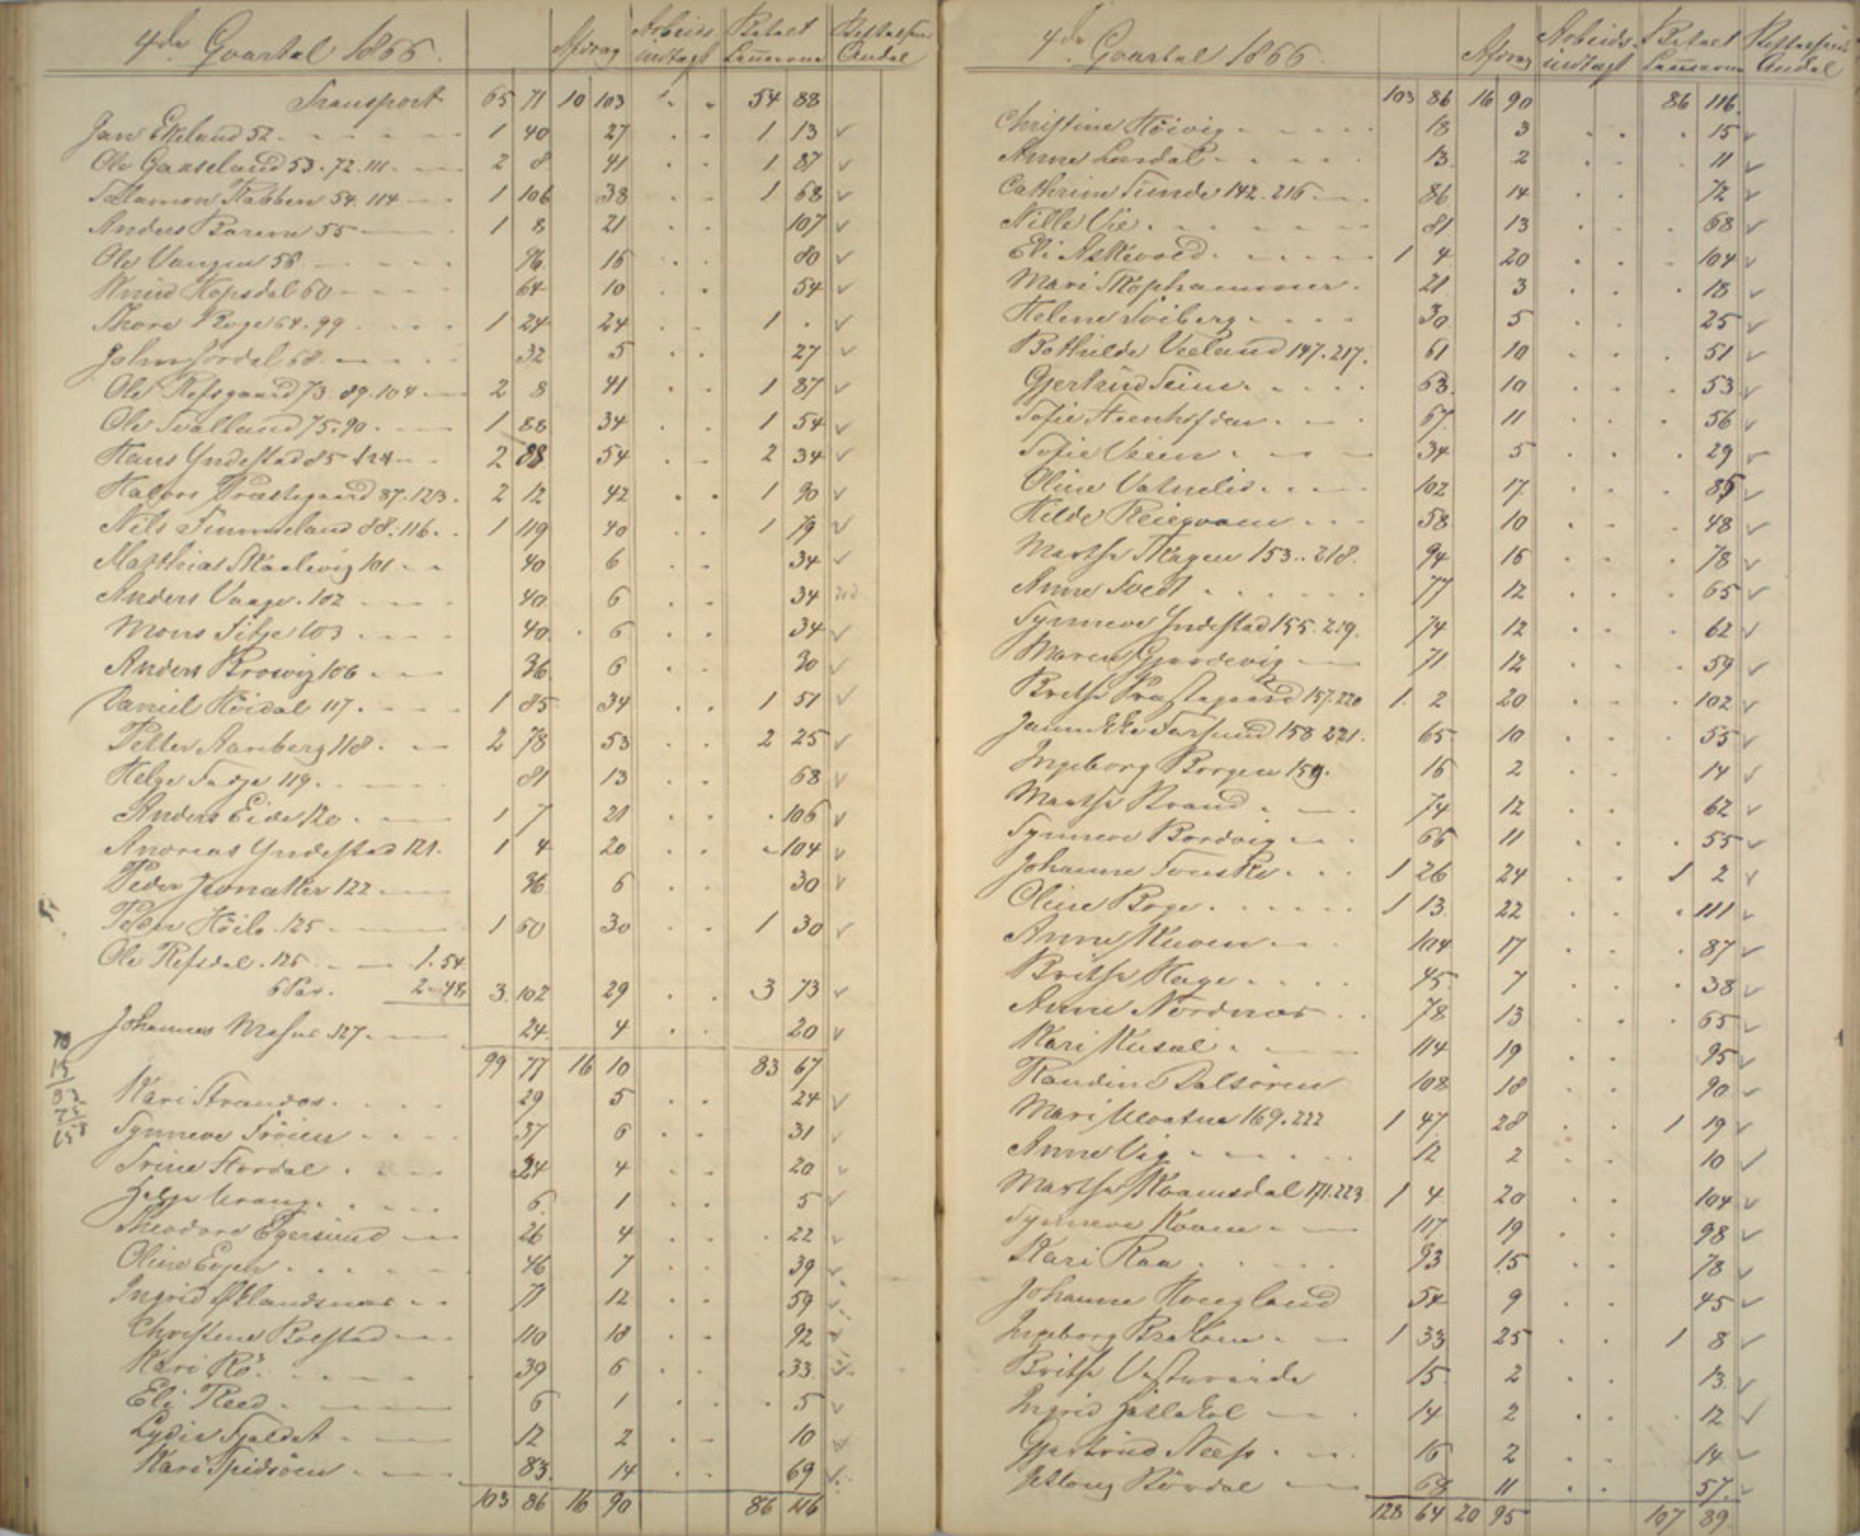 4de Qvartal 1866. Afdrag Arbeids- indtægt Betalt Lemmerne
Transport 65 71 10 103 54 88
Jan Ekeland 52 1 40 27 1 13
Ole Gaaseland 53. 72. 111. 2 8 41 1 87
Salamon Rabben 54. 114 1 106 38 1 68
Anders 55 1 8 21 107
Ole Vangen 56 96 16 80
Knud Hopsdal 60 64 10 54
Thore Roge 64. 99 1 24 24 1 .
68 32 5 27
Ole Refsgaard 73. 89. 104 2 8 41 1 87
Ole Tvalland 75. 90. 1 88 34 1 54
Hans Yndestad 85 124 2 88 54 2 34
Halvor Præstegaard 87. 123. 2 12 42 1 90
Nils Timmeland 88. 116. 1 119 40 1 79
Matthias Skaalevig 101 40 6 34
Anders Vaage. 102 40 6 34
Mons Sitje 103 40 6 34
Anders Brovig 106 36 6 30
Daniel Höidal 117. 1 85 34 1 51
Petter Aareberg 118. 2 78 53 2 25
Helge Tadje 119. 81 13 68
Anders Eide 120. 1 7 21 106
Andreas Yndestad 121. 1 4 20 104
Peder 122 36 6 30
Peder Höilo. 125 1 60 30 1 30
Ole Refsdal. 126 1. 54
6 Par. 2. 48 3. 102 29 3 73
Johannes 127. 24 4 20
99 77 16 10 83 67
Kari Strandos. 29 5 24
Synneve Fröien 37 6 31
Trine Flordal 24 4 20
Helge 6 1 5
Theodore Egersund 26 4 22
Oline Eggen 46 7 39
Ingrid Øklandsnæs 71 12 59
Christine Bolstad 110 18 92
Kari Rö. 39 6 33
Eli Reed. 6 1 5
Lydie Fjeldet 12 2 10
Kari Spidsöen 83 14 69
103 86 16 90 86 116
4de Qvartal 1866 Afdrag Arbeids- indtægt Betalt Lemmerne
103 86 16 90 86 116
Christine Höivig 18 3 15
Anne Lærdal 13 2 11
Cathrine Tunde 142. 216 86 14 72
Nille Vie 81 13 68
Eli Askevold. 1 4 20 104
Mari Skophammer. 21 3 18
Helene Soiberg 30 5 25
Bothilde Veeland 147. 217. 61 10 51
Gjertrud Seim. 63 10 53
Sofie 67 11 56
Sofie Veien 34 5 29
Oline Vatnelid. 102 17 85
Hilde Reiegvam 58 10 48
Marthe Skagen 153. 218. 94 16 78
Anne Tvedt 77 12 65
Synneve Yndestad 155. 219. 74 12 62
Maren Gjerdevig 71 12 59
Brithe Præstegaard 157. 220 1 2 20 102
Jannikke Farsund 158 221. 65 10 55
Ingeborg Borgen 159. 16 2 14
Marthe Strand 74 12 62
Synneve Bordvig 66 11 55
Johanne Fonske 1 26 24 1 2
Oline Boge 1 13 22 111
Anne Kuven 104 17 87
Brithe Hage 45 7 38
Anne Nordnæs 78 13 65
Kari Kusal 114 19 95
Randine Dalsören 108 18 90
Mari 169. 222 1 47 28 1 19
Anne Vig 12 2 10
Marthe Kvamsdal 171. 223 1 4 20 104
Synneve Kvam 117 19 98
Kari Raa 93 15 78
Johanne Hougland 54 9 45
Ingeborg Brekken 1 33 25 1 8
Brithe 15 2 13
Ingrid 14 2 12
Gjertrud Næss 16 2 14
68 11 57
128 64 20 95 107 89